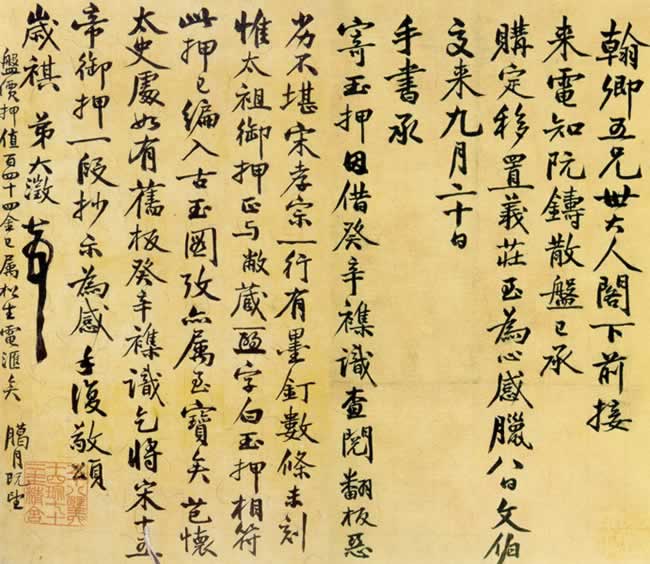 翰卿五兄世大人閣下前接
来電知阮鑄散盤已承
購定移置義莊至為心感臘八日文伯
交来九月二十日
手書承
寄玉押因借癸辛襍識查閱翻板惡
劣不堪宋孝宗一行有墨釘數條未刻
惟太祖御押正与敝藏字白玉押相符
此押已編入古玉圖攷亦属至寶矣芑懷
太史處如有舊板癸辛襍識乞將宋十五
帝御押一段抄示為感手復敬頌
嵗祺 弟大澂
盤價押值百四十四金已属松生電滙矣 臘月既望